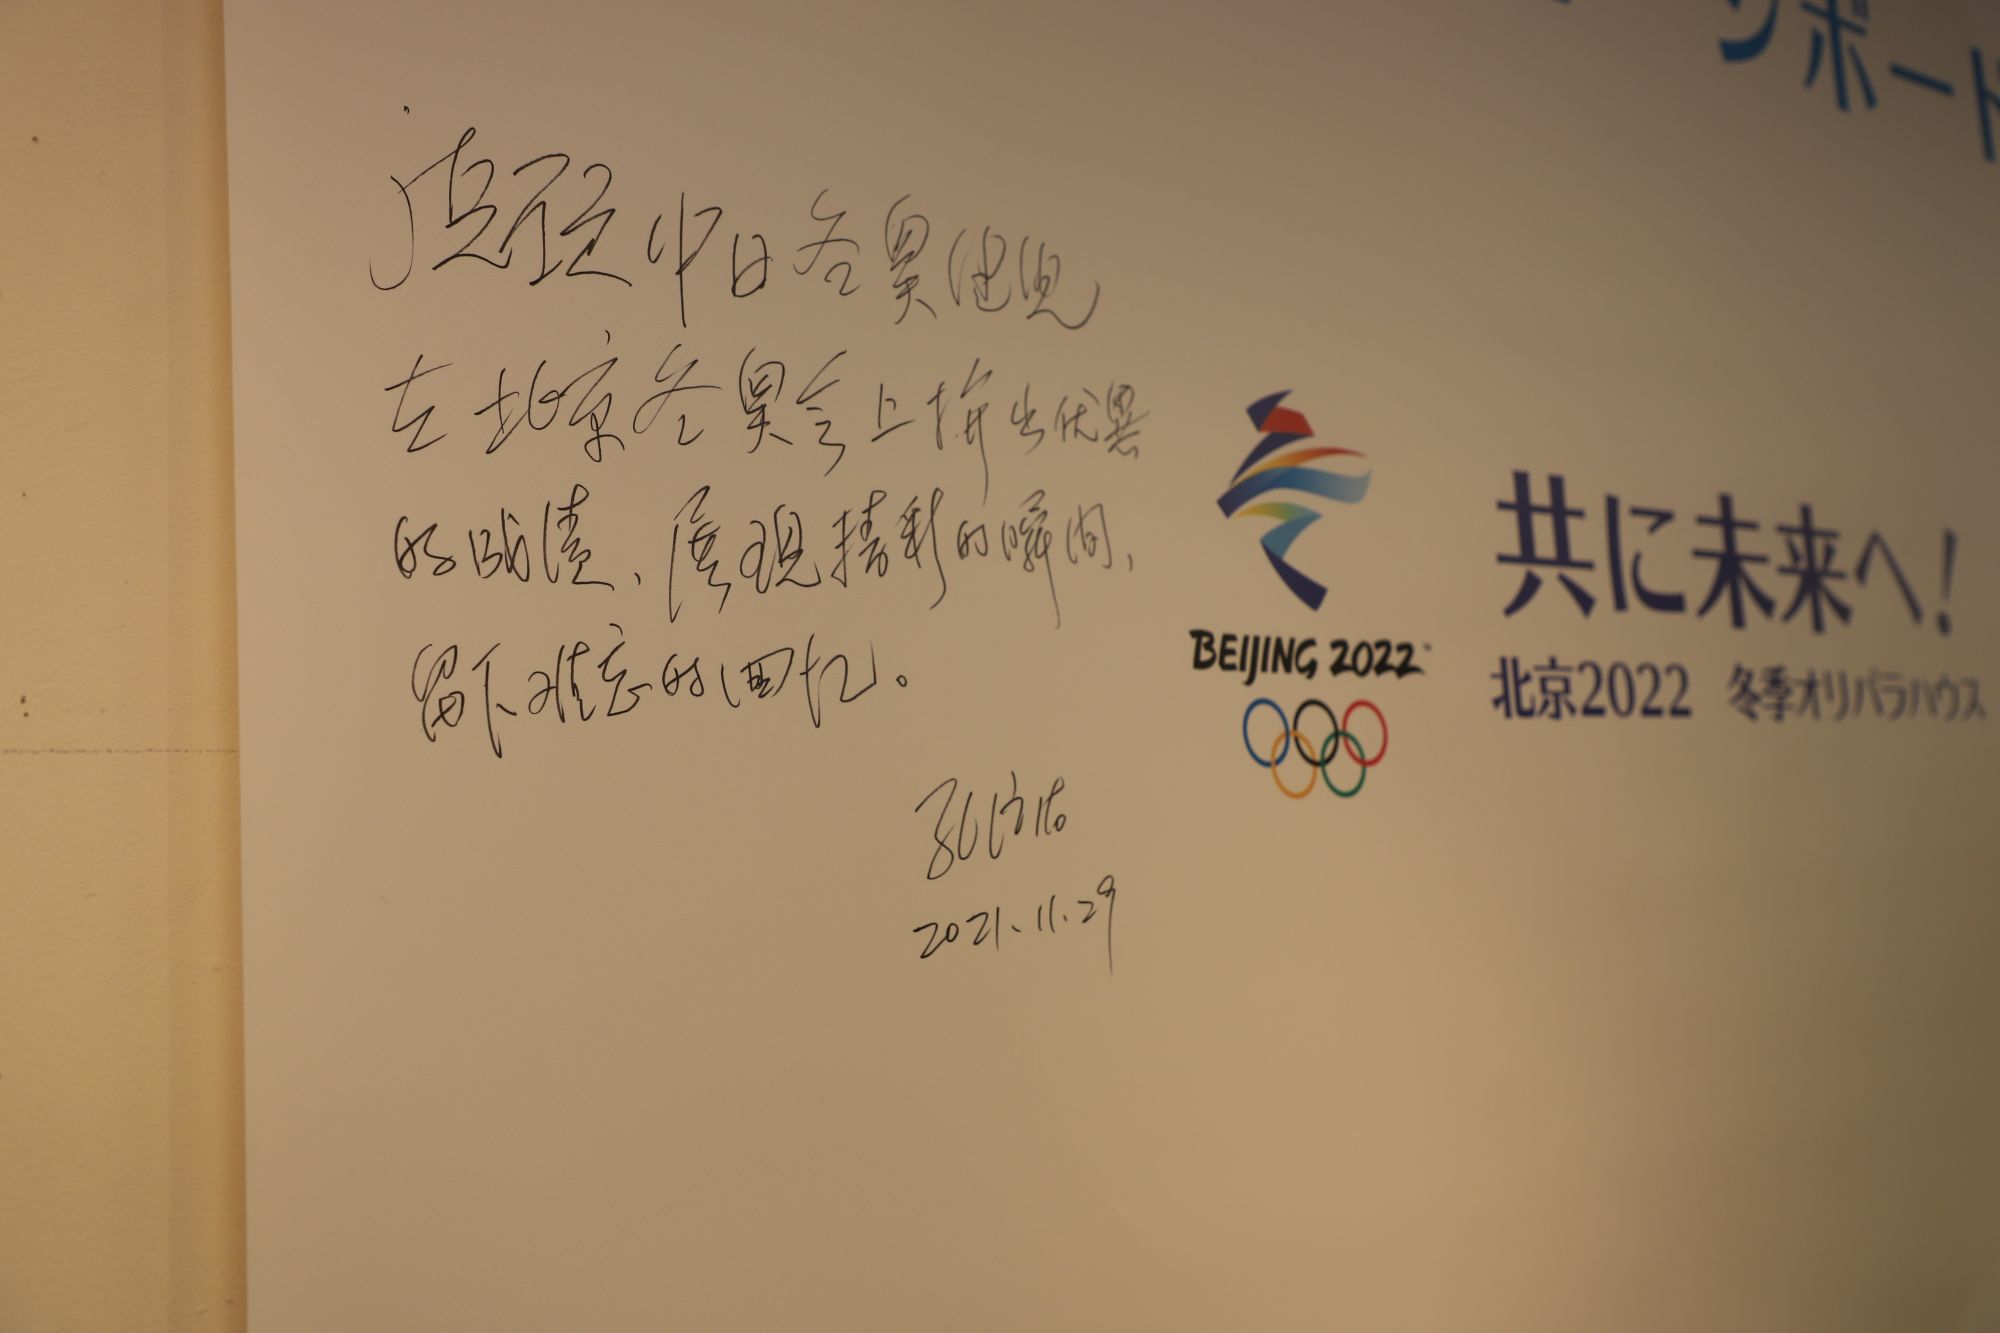 ンボード
衷心预祝中日冬奥健儿
在北京冬奥会上拼出优异
的成绩、展现精彩的瞬间、
留下难忘的回忆。
2021.11.29
BEIJING 2022™
共に未来へ!
北京2022 冬季オリパラハウス